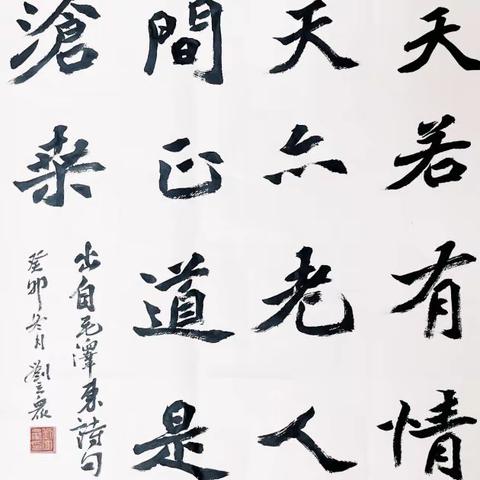 天若有情
天亦老人
間正道是
滄桑
出自毛澤東詩句
癸卯冬月 劉